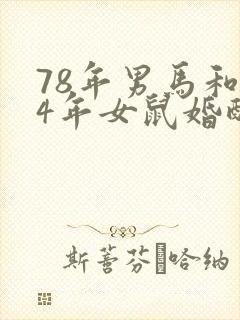 78年男馬和
4年女鼠婚配
斯蕾芬 哈纳